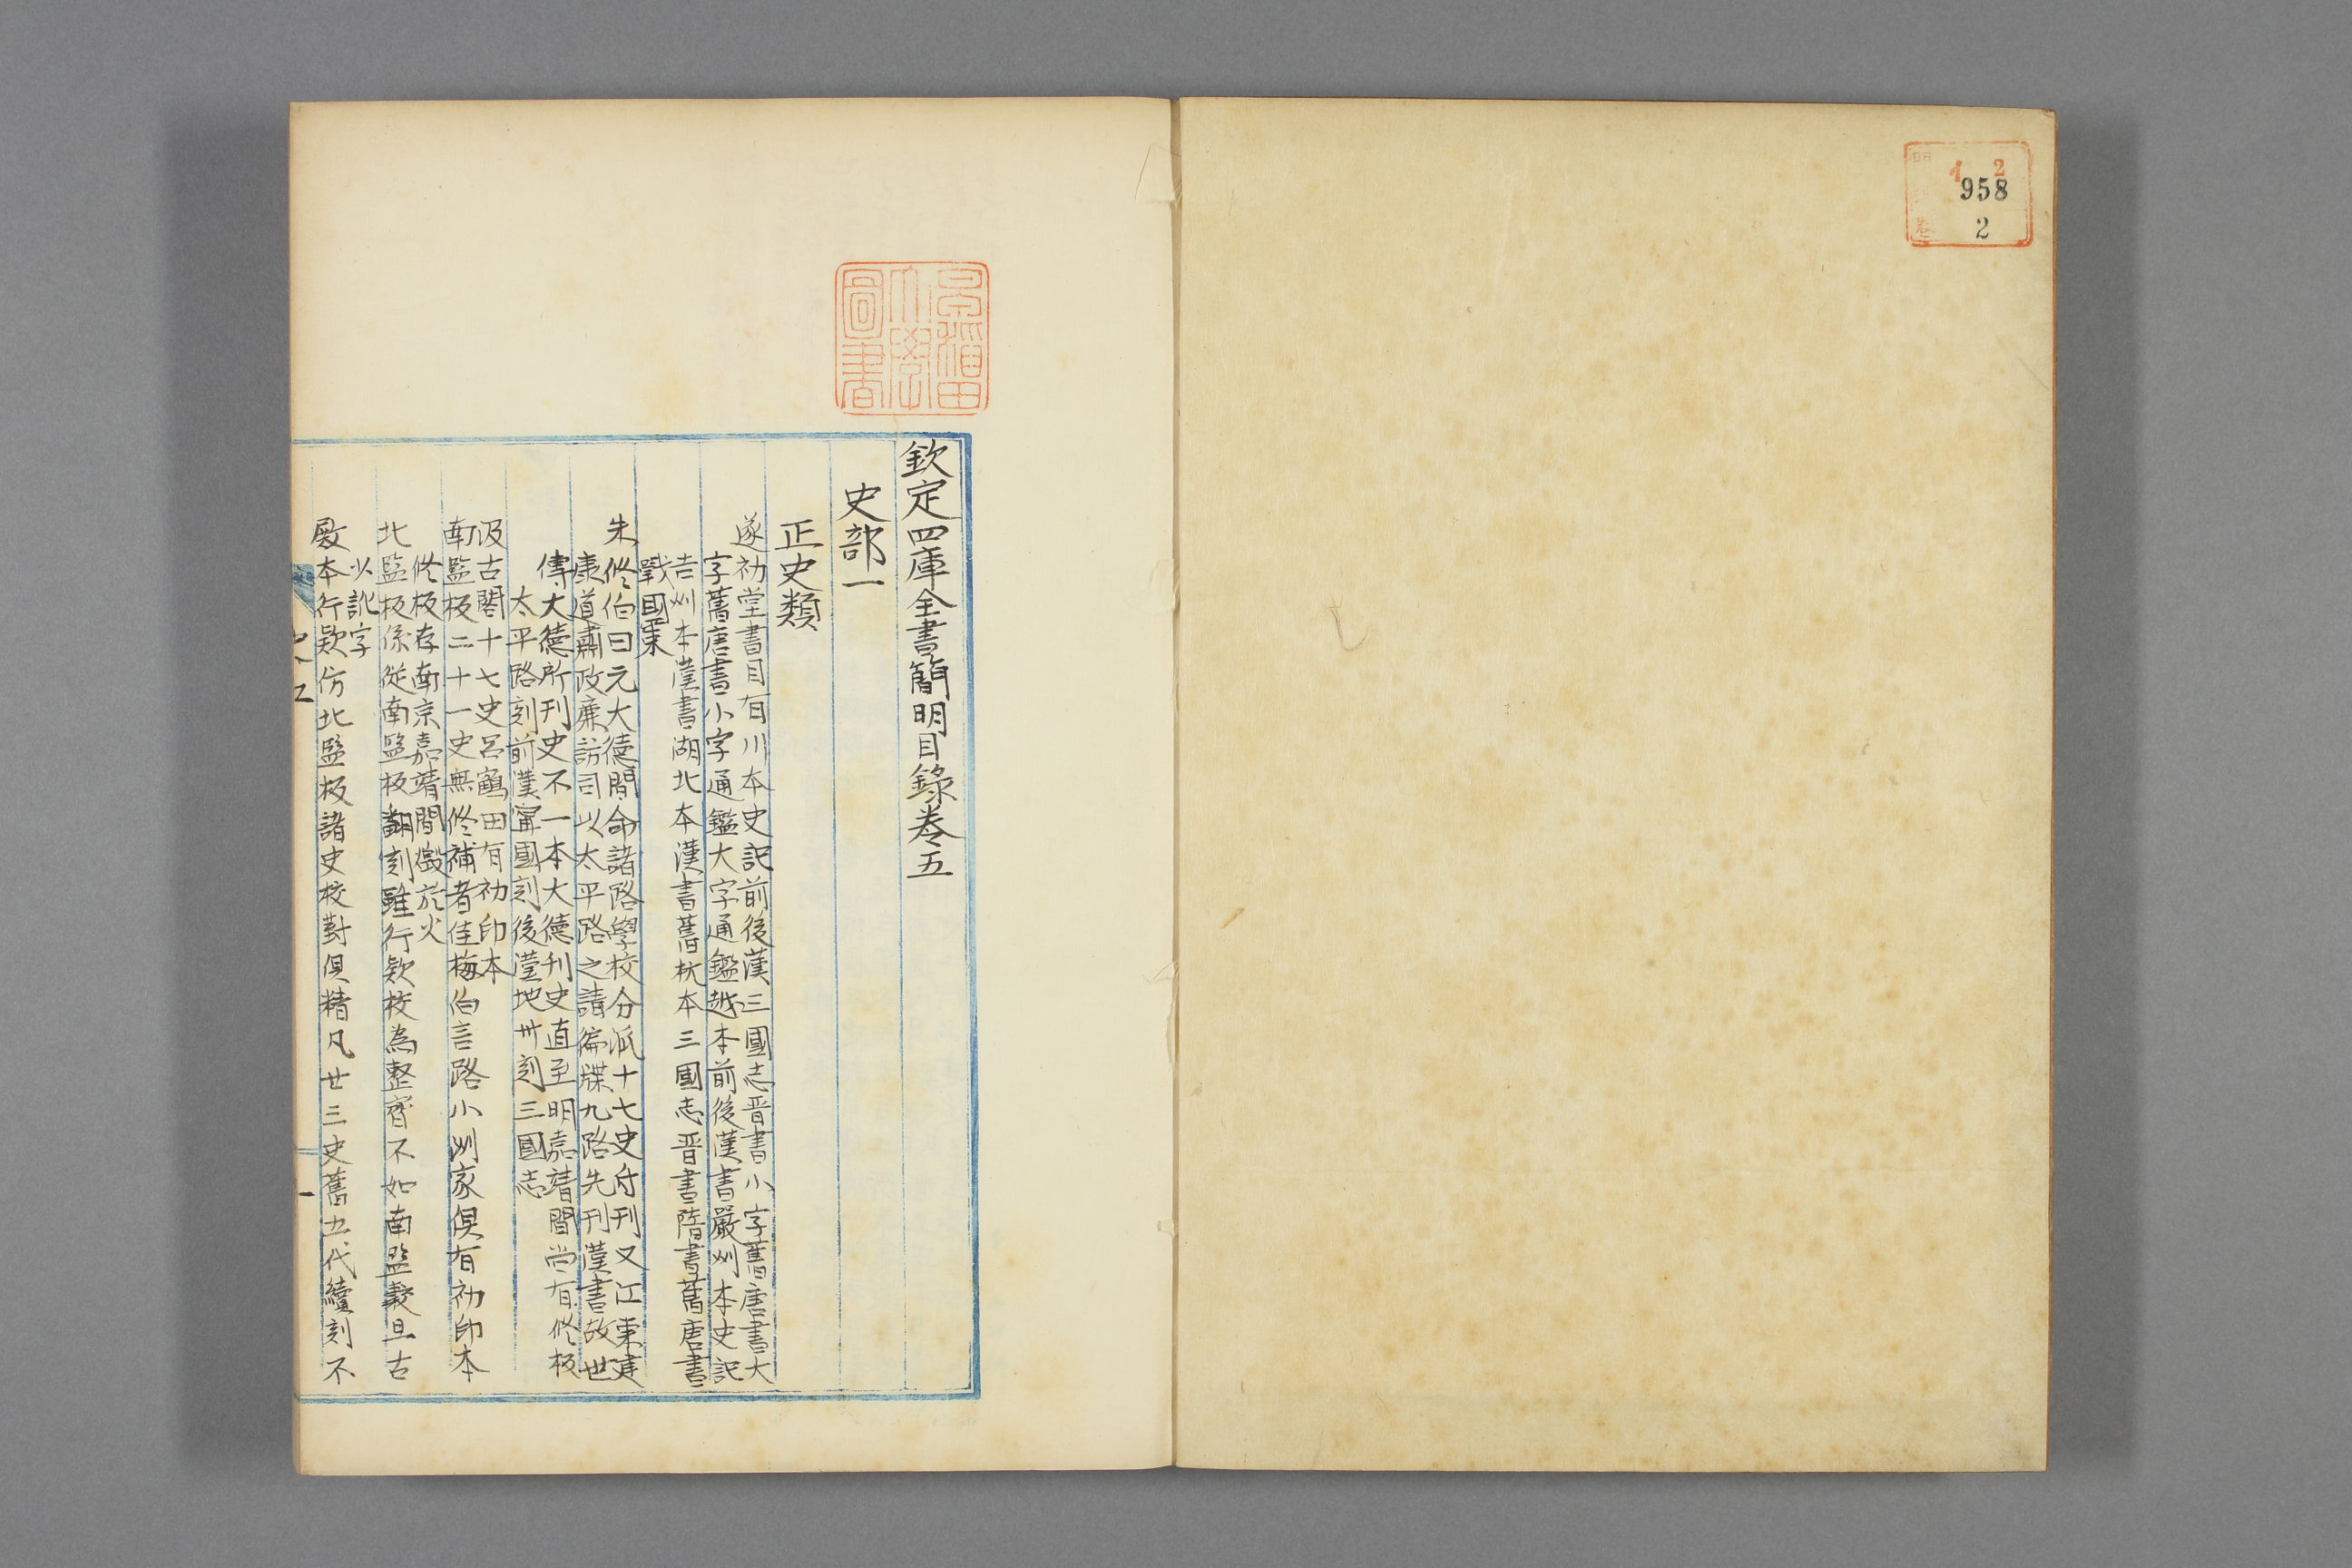 欽定四庫全書簡明目錄卷五
史部一
正史類
遂初堂書目有川本史記前後漢三國志晋書小字舊唐書大
字舊唐書小字通鑑大字通鑑越本前後漢書嚴州本史記
吉州本漢書湖北本漢書舊杭本三國志晋書隋書舊唐書
戰國策
朱修伯曰元大德間命諸路學校分派十七史付刊又江東建
康道肅政廉訪司以太平路之請徧牒九路先刊漢書故世
傳大德所刊史不一本大德刊史直至明嘉靖間尚有修板
太平路刻前漢寧國刻後漢池州刻三國志
汲古閣十七史呂鶴田有初印本
南監板二十一史無修補者佳梅伯言路小洲家俱有初印本
修板存南京嘉靖間燬於火
北監板係從南監板翻刻雖行欵校為整齊不如南監最旦古
以訛字
殿本行欵仿北監板諸史校對俱精凡廿三史舊五代續刻不
圖書
大學
早稻田
1 2
958
2